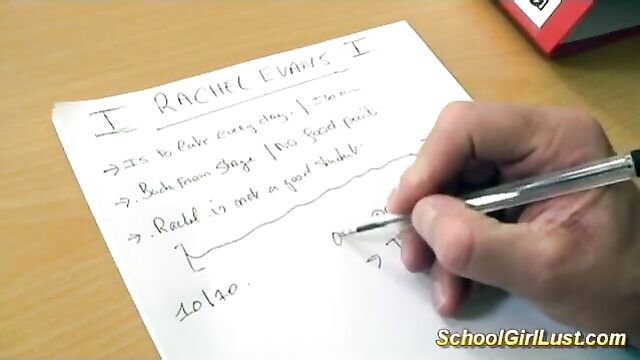 I RACHEL EVANS I
→ Is to Late every day. |
→. Back From Stage | No Good
→. Rachel is not a good student.
10/70.
SchoolGirlLust.com